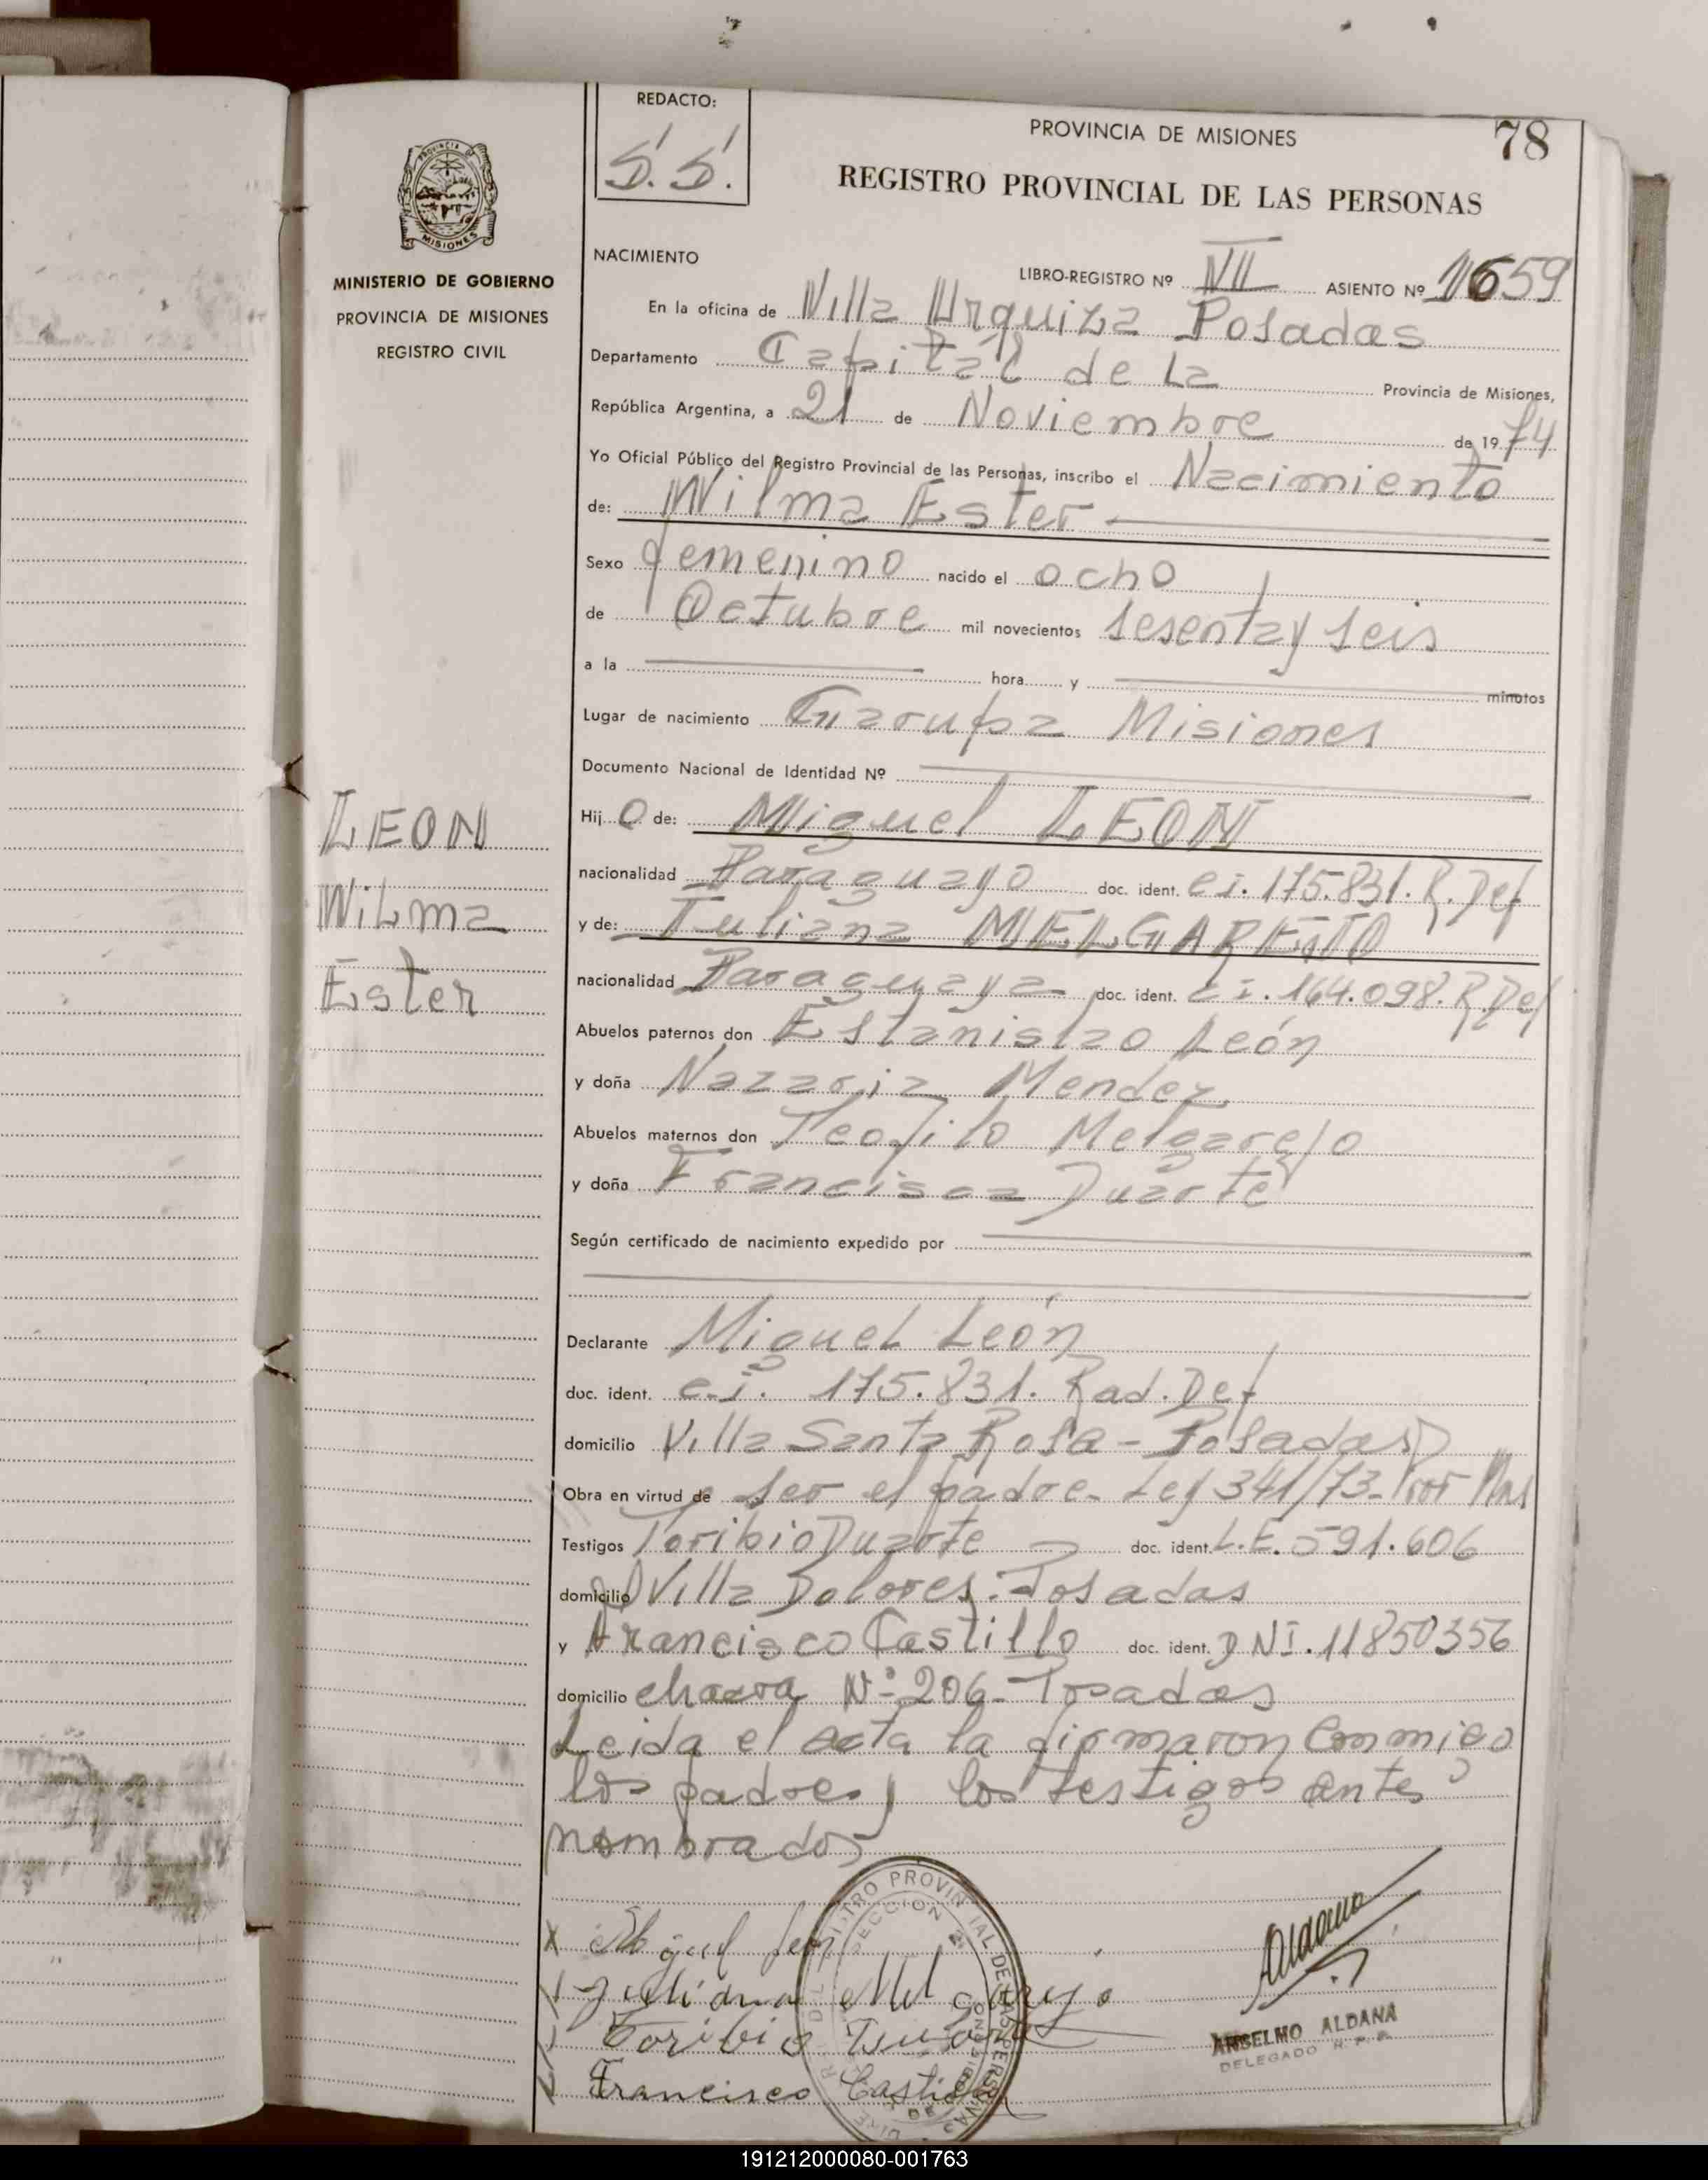 REDACTO:
S. S.
PROVINCIA DE MISIONES
78
REGISTRO PROVINCIAL DE LAS PERSONAS
PROVINCIA DE
MISIONES
MINISTERIO DE GOBIERNO
PROVINCIA DE MISIONES
REGISTRO CIVIL
NACIMIENTO
LIBRO-REGISTRO Nº VII ASIENTO Nº 1659
En la oficina de Villa Urquiza Posadas
Departamento Capital de La Provincia de Misiones,
República Argentina, a 21 de Noviembre de 1974
Yo Oficial Público del Registro Provincial de las Personas, inscribo el Nacimiento
de: Wilma Ester
Sexo femenino nacido el ocho
de Octubre mil novecientos sesenta y seis
a la hora y minutos
Lugar de nacimiento Garupa Misiones
Documento Nacional de Identidad Nº
LEON
Wilma
Ester
Hij o de: Miguel LEON
nacionalidad Paraguayo doc. ident. c i. 175.831. R. Def
y de: Juliana MELGAREJO
nacionalidad Paraguaya doc. ident. c i. 164.098. R. Def
Abuelos paternos don Estanislao León
y doña Nazaria Mendez
Abuelos maternos don Teofilo Melgarejo
y doña Francisca Duarte
Según certificado de nacimiento expedido por
Declarante Miguel León
doc. ident. c.i. 175.831. Rad. Def
domicilio Villa Santa Rosa - Posadas
Obra en virtud de ser el padre - Ley 341/73-
Testigos Toribio Duarte doc. ident. L.E. 591.606
domicilio Villa Dolores. Posadas
y Francisco Castillo doc. ident. DNI. 11850356
domicilio chacra Nº 206 - Posadas
Leida el acta la firmaron conmigo
los padres y los testigos antes
nombrados
x Miguel León
Juliana Melgarejo
Toribio Duarte
Francisco Castillo
Aldana
ANSELMO ALDANA
DELEGADO R. P. P.
191212000080-001763